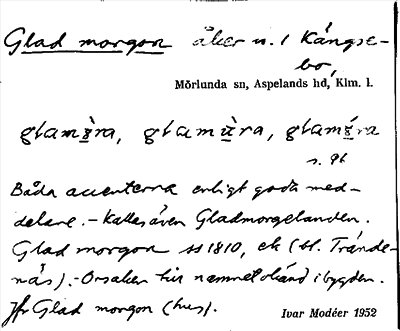 Glad morgon åker n. i Kångse-
bo,
Mörlunda sn, Aspelands hd, Klm. l.
glamæ̀ra, glamæ̀ra, glamǽra
s. 91
Båda accenterna enligt goda med-
delare. – Kallas även Gladmorgelanden.
Glad morgon ss 1810, ek (bl. Trånde-
näs). – Orsaken till namnet okänd i bygden.
Jfr Glad morgon (hus).
Ivar Modéer 1952